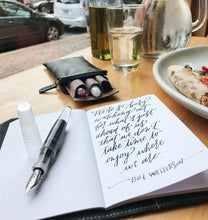 "We're so busy
watching out
for what's just
ahead of us
that we don't
take time to
enjoy where
we are."
-BILL WATTERSON